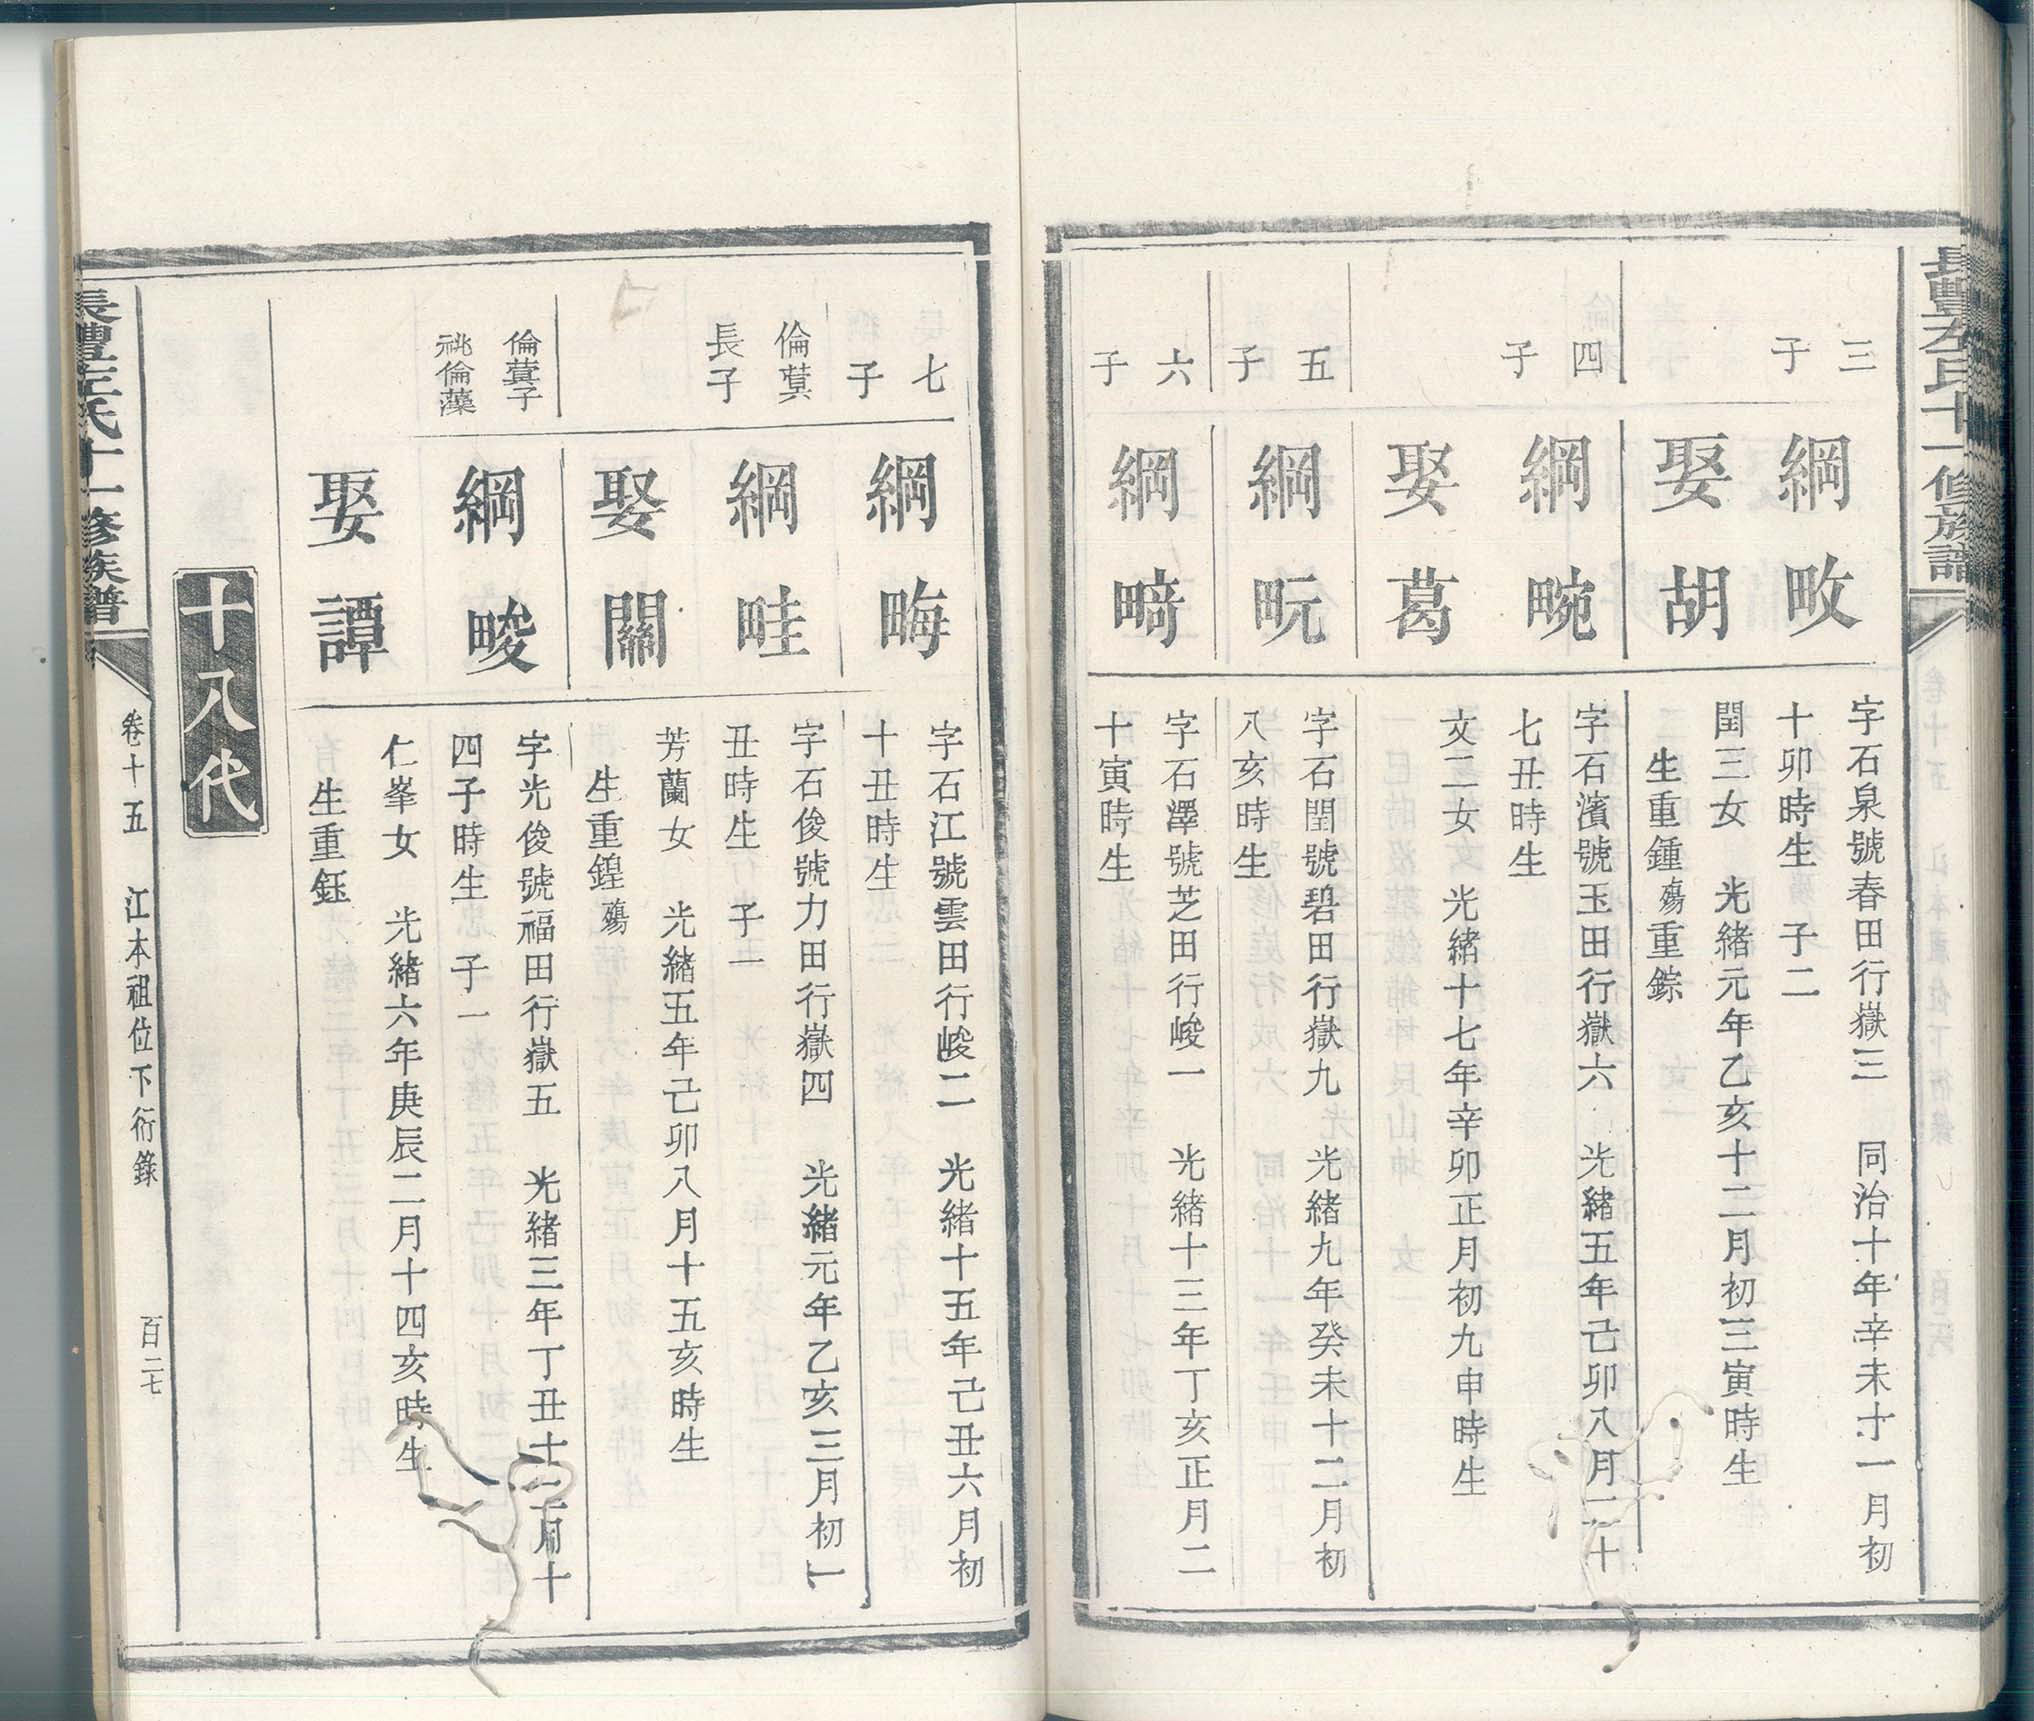 長豐左氏十一修族譜
三
子
綱畋
字石泉號春田行嶽三 同治十年辛未十一月初
十卯時生 子二
娶胡
閏三女 光緒元年乙亥十二月初三寅時生
生重鍾殤重錝
四
子
綱畹
字石濱號玉田行嶽六 光緒五年己卯八月二十
七丑時生
娶葛
文二女 光緒十七年辛卯正月初九申時生
五
子
綱畍
字石閏號碧田行嶽九 光緒九年癸未十二月初
八亥時生
六
子
綱畸
字石澤號芝田行峻一 光緒十三年丁亥正月二
十寅時生
七
子
綱畮
字石江號雲田行峻二 光緒十五年己丑六月初
十丑時生
倫蓂
長子
綱畦
字石俊號力田行嶽四 光緒元年乙亥三月初一
丑時生 子一
娶關
芳蘭女 光緒五年己卯八月十五亥時生
生重鍠殤
倫蓂子
祧倫藻
綱畯
字光俊號福田行嶽五 光緒三年丁丑十二月十
四子時生 子一
娶譚
仁峯女 光緒六年庚辰二月十四亥時生
生重鈺
十八代
長豐左氏十一修族譜
卷十五 江本祖位下衍錄 百二七